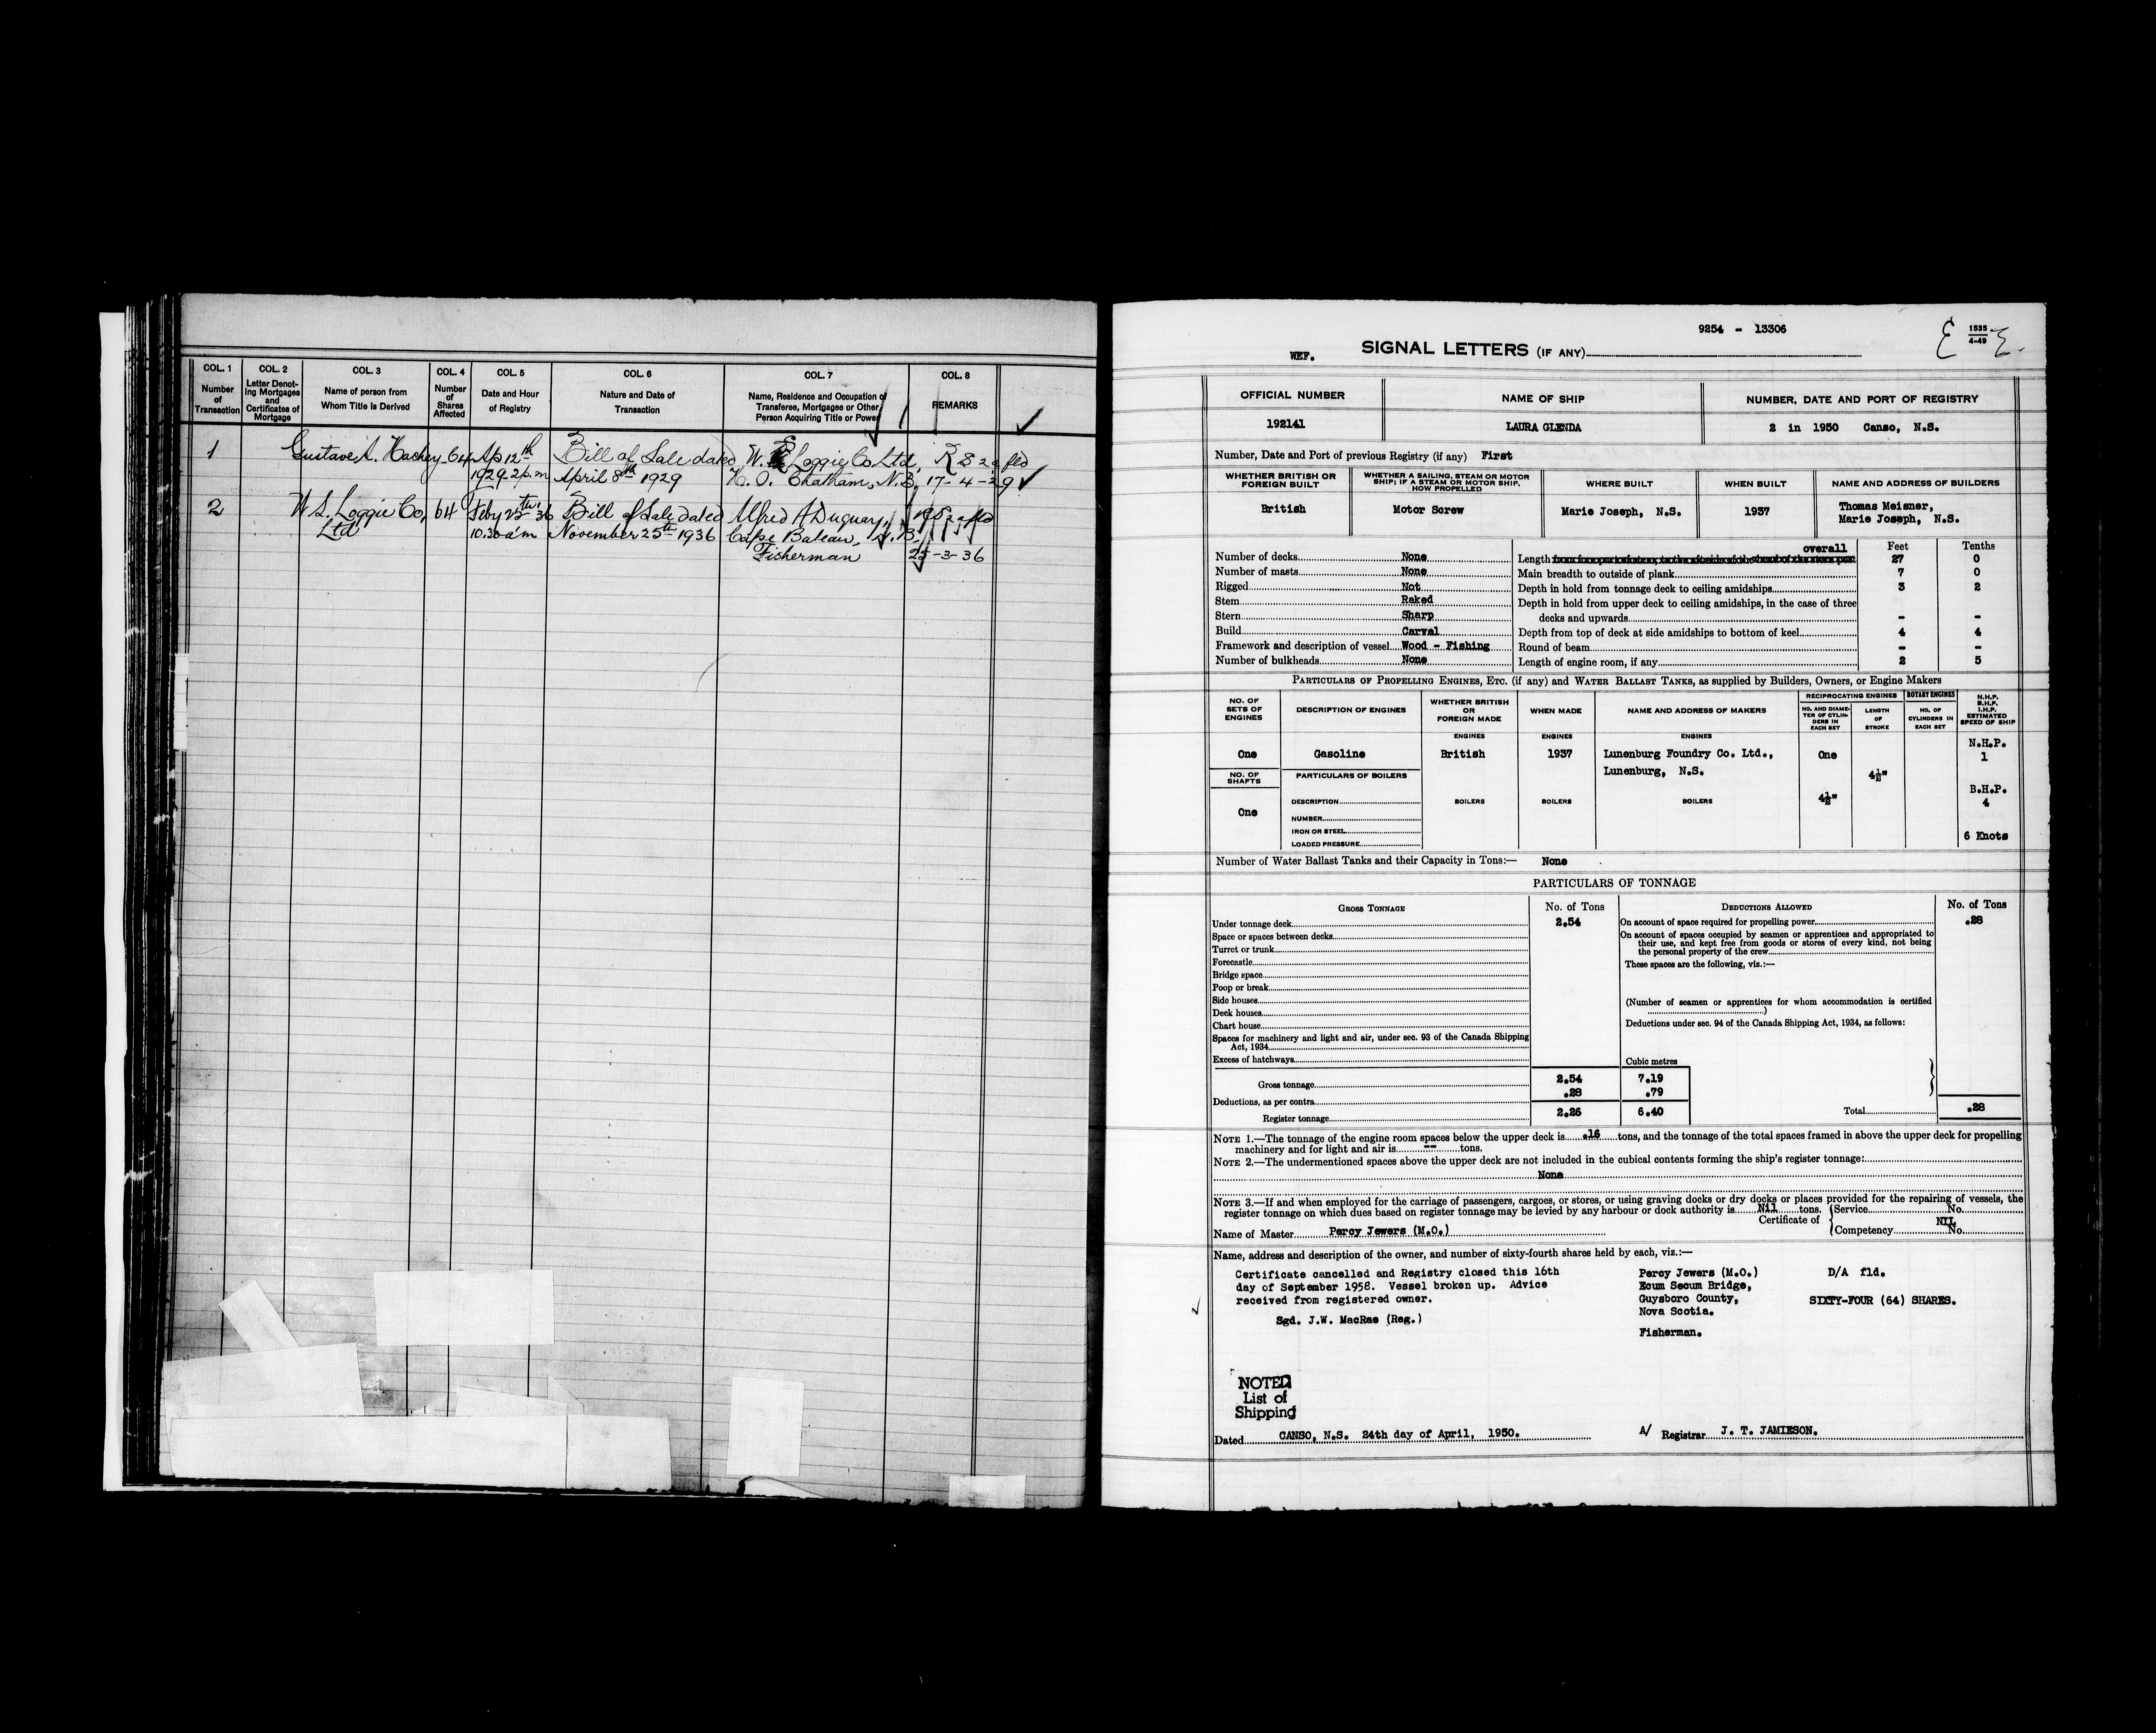 COL. 1 COL. 2 COL. 3 COL. 4 COL. 5 COL. 6 COL. 7 COL. 8
Number of Transaction
Letter Denoting Mortgages and Certificates of Mortgage
Name of person from Whom Title is Derived
Number of Shares Affected
Date and Hour of Registry
Nature and Date of Transaction
Name, Residence and Occupation of Transferee, Mortgagee or Other Person Acquiring Title or Power
REMARKS
1 Gustave A. Hachey 64 Ap 12th Bill of Sale dated W. S. Loggie Co Ltd,
1929-2 p.m April 8th 1929 H. O. Chatham, N.B. 17-4-29
2 W S. Loggie Co, 64 Feby 25th '36 Bill of Sale dated Alfred A Duguay,
Ltd 10.30 a'm November 25th 1936 Cape Bateau, N.B.
Fisherman 25-3-36
9254 - 13306
WEF. SIGNAL LETTERS (IF ANY)
1535
4-49
OFFICIAL NUMBER NAME OF SHIP NUMBER, DATE AND PORT OF REGISTRY
192141 LAURA GLENDA 2 in 1950 Canso, N.S.
Number, Date and Port of previous Registry (if any) First
WHETHER BRITISH OR FOREIGN BUILT
WHETHER A SAILING, STEAM OR MOTOR SHIP; IF A STEAM OR MOTOR SHIP, HOW PROPELLED
WHERE BUILT WHEN BUILT NAME AND ADDRESS OF BUILDERS
British Motor Screw Marie Joseph, N.S. 1937 Thomas Meisner,
Marie Joseph, N.S.
overall Feet Tenths
Number of decks None Length 27 0
Number of masts None Main breadth to outside of plank 7 0
Rigged Not Depth in hold from tonnage deck to ceiling amidships 3 2
Stem Raked Depth in hold from upper deck to ceiling amidships, in the case of three
Stern Sharp decks and upwards - -
Build Carvel Depth from top of deck at side amidships to bottom of keel 4 4
Framework and description of vessel Wood - Fishing Round of beam - -
Number of bulkheads None Length of engine room, if any 2 5
PARTICULARS OF PROPELLING ENGINES, ETC. (if any) and WATER BALLAST TANKS, as supplied by Builders, Owners, or Engine Makers
NO. OF SETS OF ENGINES
DESCRIPTION OF ENGINES
WHETHER BRITISH OR FOREIGN MADE
WHEN MADE
NAME AND ADDRESS OF MAKERS
RECIPROCATING ENGINES ROTARY ENGINES
NO. AND DIAMETER OF CYLINDERS IN EACH SET
LENGTH OF STROKE
NO. OF CYLINDERS IN EACH SET
N.H.P. B.H.P. I.H.P. ESTIMATED SPEED OF SHIP
ENGINES ENGINES ENGINES
N.H.P.
One Gasoline British 1937 Lunenburg Foundry Co. Ltd., One 1
Lunenburg, N.S. 4½"
NO. OF SHAFTS PARTICULARS OF BOILERS
B.H.P.
DESCRIPTION BOILERS BOILERS BOILERS 4½" 4
One
NUMBER
IRON OR STEEL 6 Knots
LOADED PRESSURE
Number of Water Ballast Tanks and their Capacity in Tons:— None
PARTICULARS OF TONNAGE
GROSS TONNAGE No. of Tons DEDUCTIONS ALLOWED No. of Tons
Under tonnage deck 2.54 On account of space required for propelling power .28
Space or spaces between decks On account of spaces occupied by seamen or apprentices and appropriated to
Turret or trunk their use, and kept free from goods or stores of every kind, not being
the personal property of the crew
Forecastle These spaces are the following, viz.:—
Bridge space
Poop or break
Side houses (Number of seamen or apprentices for whom accommodation is certified
Deck houses )
Chart house Deductions under sec. 94 of the Canada Shipping Act, 1934, as follows:
Spaces for machinery and light and air, under sec. 93 of the Canada Shipping
Act, 1934
Excess of hatchways Cubic metres
Gross tonnage 2.54 7.19
Deductions, as per contra .28 .79
Register tonnage 2.26 6.40 Total .28
NOTE 1.—The tonnage of the engine room spaces below the upper deck is .16 tons, and the tonnage of the total spaces framed in above the upper deck for propelling
machinery and for light and air is -- tons.
NOTE 2.—The undermentioned spaces above the upper deck are not included in the cubical contents forming the ship's register tonnage:
None
NOTE 3.—If and when employed for the carriage of passengers, cargoes, or stores, or using graving docks or dry docks or places provided for the repairing of vessels, the
register tonnage on which dues based on register tonnage may be levied by any harbour or dock authority is Nil tons. Service No.
Certificate of NIL
Name of Master Percy Jewers (M.O.) Competency No.
Name, address and description of the owner, and number of sixty-fourth shares held by each, viz.:—
Certificate cancelled and Registry closed this 16th Percy Jewers (M.O.) D/A fld.
day of September 1958. Vessel broken up. Advice Ecum Secum Bridge,
received from registered owner. Guysboro County, SIXTY-FOUR (64) SHARES.
Nova Scotia.
Sgd. J.W. MacRae (Reg.)
Fisherman.
NOTED
List of
Shipping
Dated CANSO, N.S. 24th day of April, 1950. A/ Registrar J. T. JAMIESON.